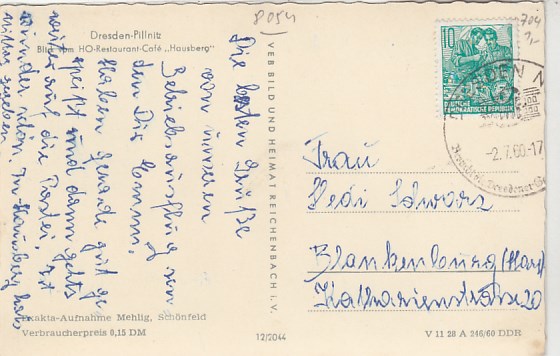 8054
704
Dresden-Pillnitz
Blick vom HO-Restaurant-Café „Hausberg"
Die besten Grüße
von unserem
Betriebsausflug von
Haben gerade gut ge
speist und dann gehts
wieder auf die
wunder schön.
VEB BILD UND HEIMAT REICHENBACH I. V.
10
DEUTSCHE
DEMOKRATISCHE REPUBLIK
DRESDEN N
-2.7.60-17
Frau
Hedi Schwarz
Blankenburg (Harz)
Katharienstraße 20
Exakta-Aufnahme Mehlig, Schönfeld
Verbraucherpreis 0,15 DM
12/2044
V 11 28 A 246/60 DDR